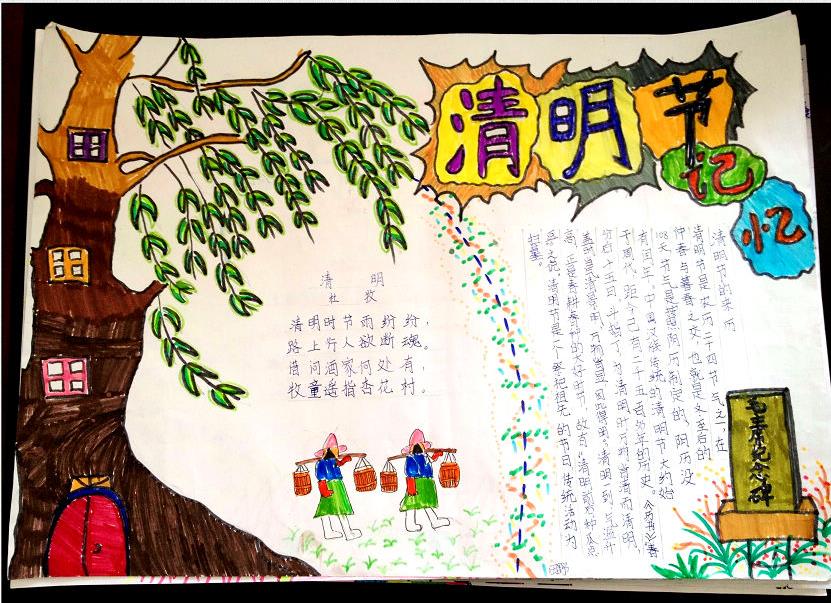 清明节
记忆
清明
杜牧
清明时节雨纷纷，
路上行人欲断魂。
借问酒家何处有，
牧童遥指杏花村。
清明节的来历
清明节是农历二十四节气之一，在
仲春与暮春之交，也就是冬至后的
108天。节气是按照阴历制定的，阴历没
有闰年。中国汉族传统的清明节大约始
于周代，距今已有二千五百多年的历史。《历书》：“春
分后十五日，斗指丁，为清明，时万物皆洁而清明，
盖时当气清景明，万物皆显，因此得名。”清明一到，气温升
高，正是春耕春种的大好时节，故有“清明前后，种瓜点
豆”之说。清明节是一个祭祀祖先的节日，传统活动为
扫墓。
毛主席纪念碑